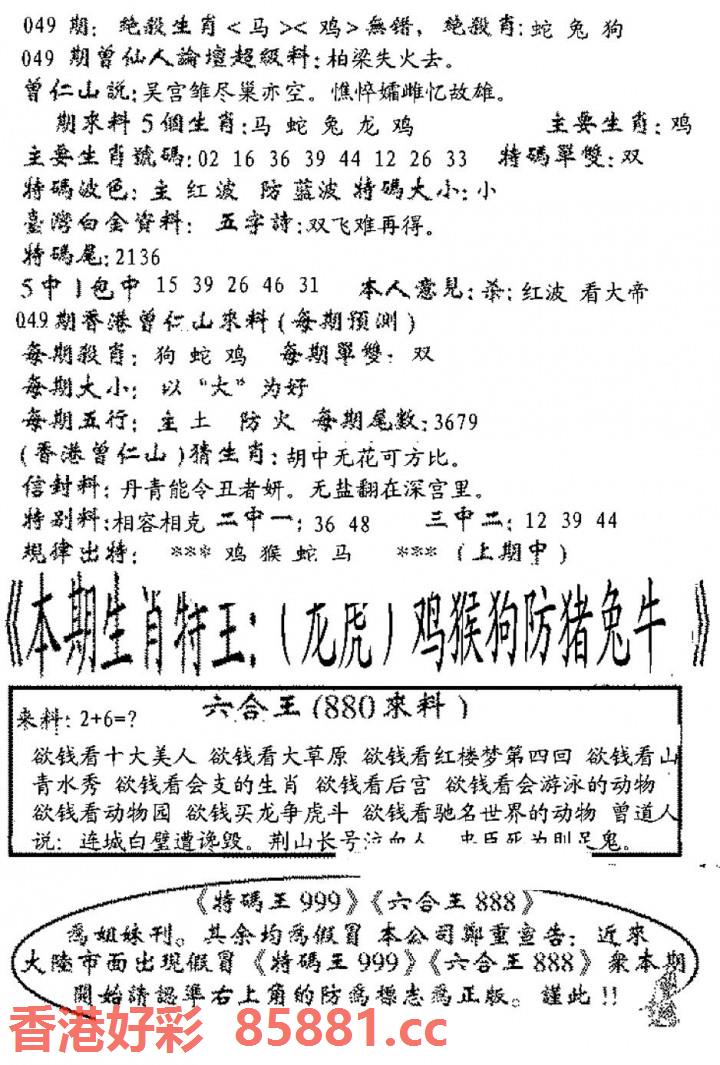 049 期: 绝殺生肖<马><鸡>無错, 绝殺肖: 蛇 兔 狗
049 期曾仙人論壇超級料: 柏梁失火去。
曾仁山説: 吴宫雏尽巢亦空。憔悴孀雌忆故雄。
期來料 5 個生肖: 马 蛇 兔 龙 鸡 主要生肖: 鸡
主要生肖號碼: 02 16 36 39 44 12 26 33 特碼單雙: 双
特碼波色: 主 红波 防 蓝波 特碼大小: 小
臺灣白金資料: 五字詩: 双飞难再得。
特碼尾: 2136
5 中 1 包中 15 39 26 46 31 本人意見: 杀: 红波 看大帝
049 期香港曾仁山來料 (每期预測)
每期殺肖: 狗 蛇 鸡 每期單雙: 双
每期大小: 以 “大” 为好
每期五行: 主 土 防 火 每期尾數: 3679
(香港曾仁山) 猜生肖: 胡中无花可方比。
信封料: 丹青能令丑者妍。无盐翻在深宫里。
特别料: 相容相克 二中一: 36 48 三中二: 12 39 44
規律出特: *** 鸡 猴 蛇 马 *** (上期中)
《本期生肖特王: (龙虎) 鸡猴狗防猪兔牛 》
六合王 (880 來料)
来料: 2+6=?
欲钱看十大美人 欲钱看大草原 欲钱看红楼梦第四回 欲钱看山
青水秀 欲钱看会支的生肖 欲钱看后宫 欲钱看会游泳的动物
欲钱看动物园 欲钱买龙争虎斗 欲钱看驰名世界的动物 曾道人
说: 连城白璧遭谗毁。荆山长号泣血人 忠臣死为刖足鬼。
《特碼王 999》《六合王 888》
為姐妹刊。其余均為假冒 本公司鄭重宣告: 近來
大陸市面出現假冒《特碼王 999》《六合王 888》衆本期
開始請認準右上角的防偽標志為正版。謹此 !!
香港好彩 85881.cc